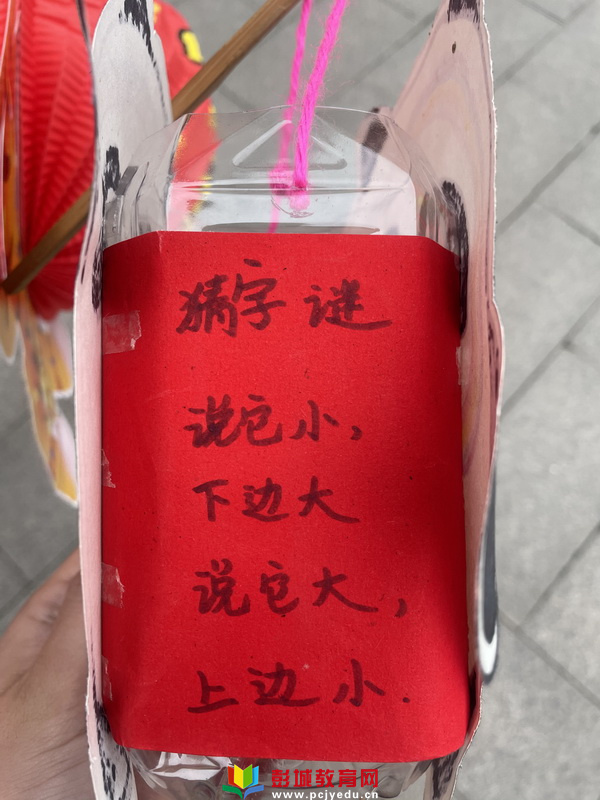 猜字谜
说它小，
下边大
说它大，
上边小.
彭城教育网
www.pcjyedu.cn